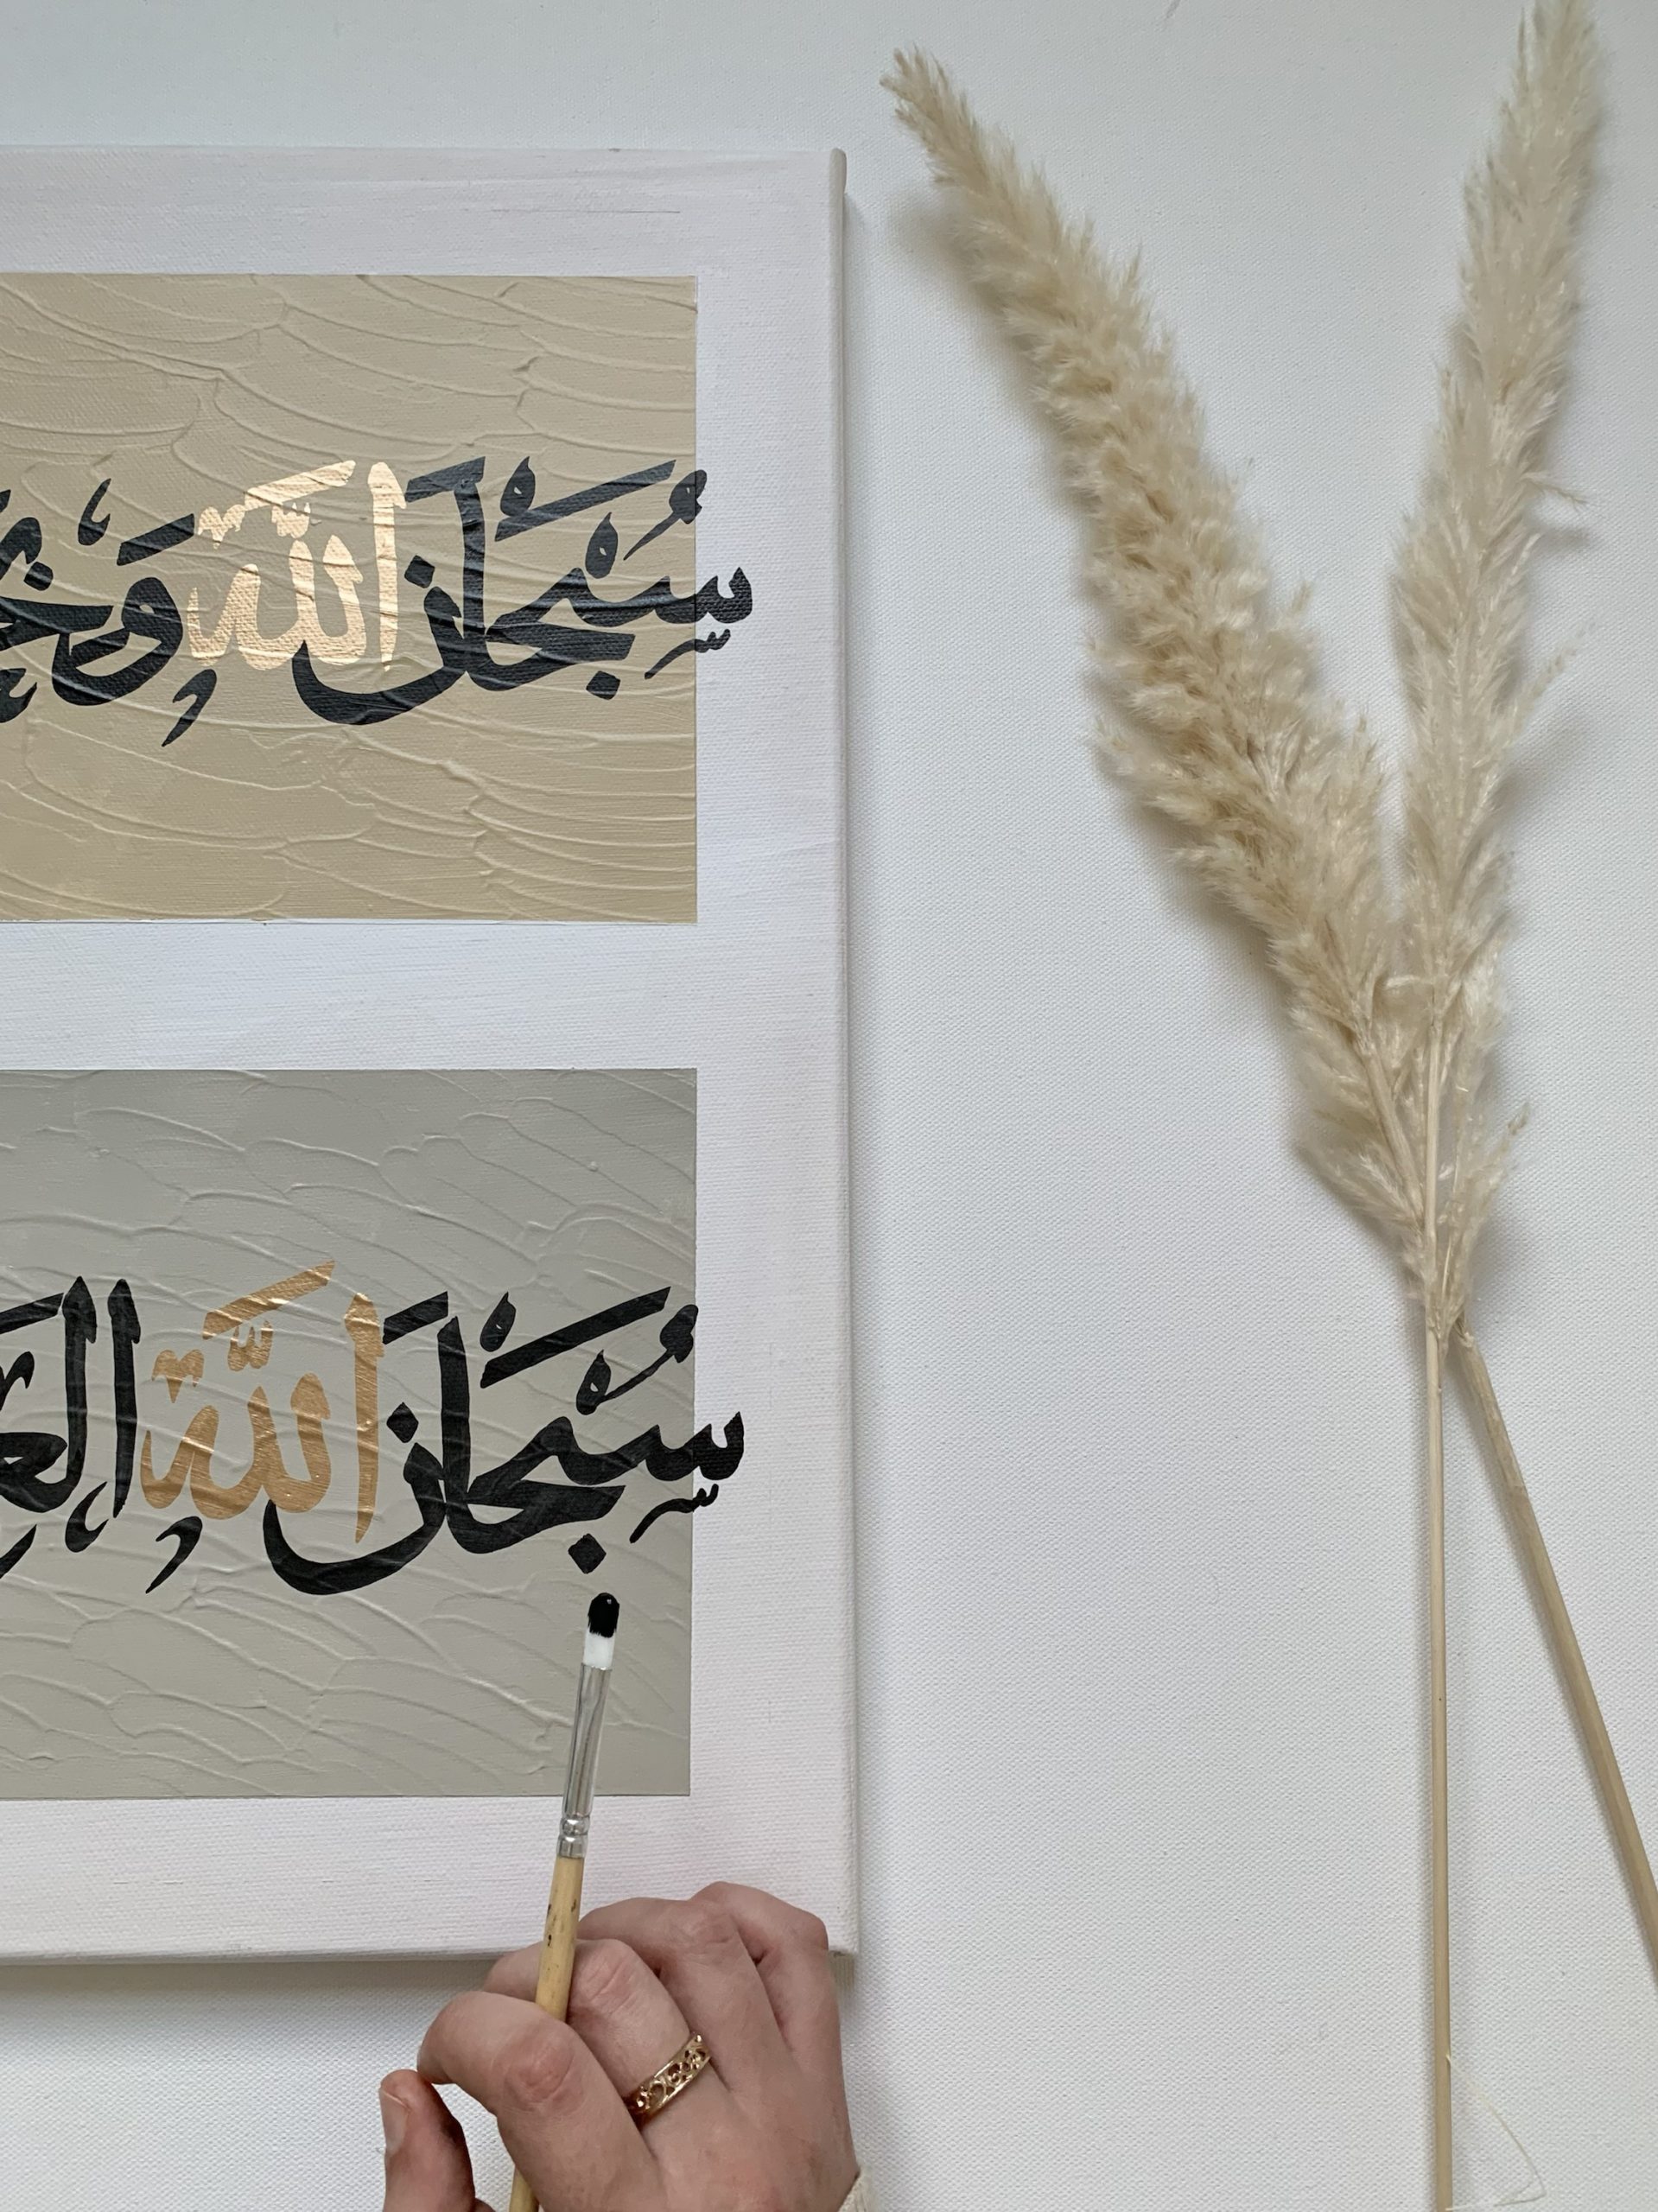 سُبْحَانَ اللَّهِ وَبِحَ
سُبْحَانَ اللَّهِ الْعَ